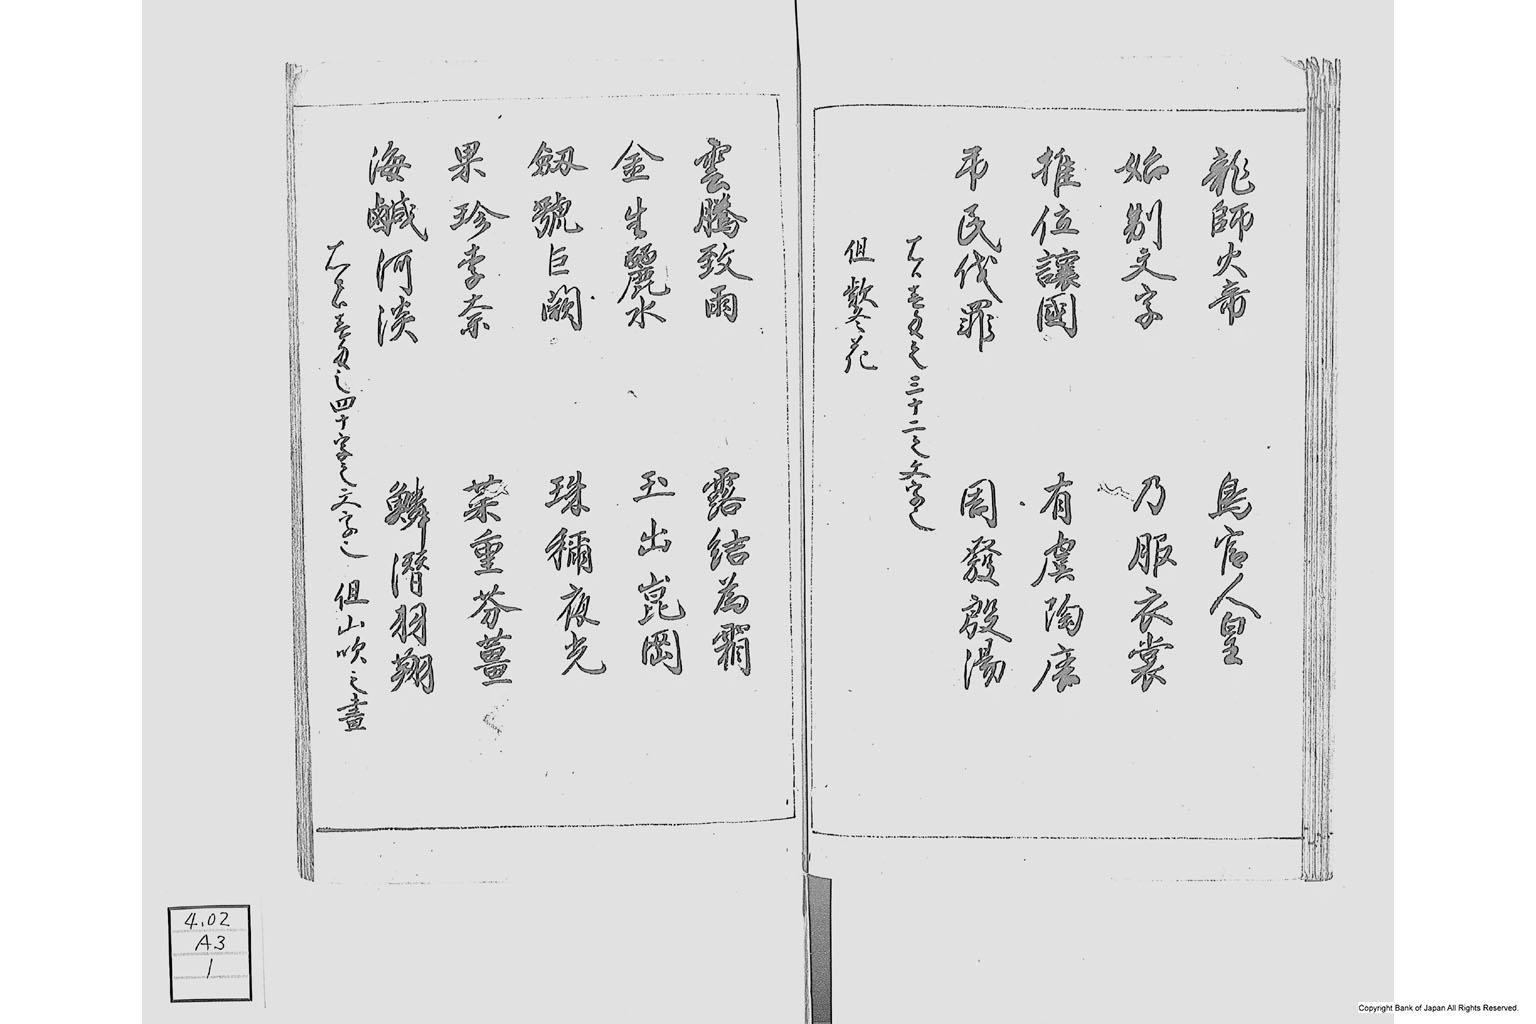 龍師火帝　鳥官人皇
始制文字　乃服衣裳
推位讓國　有虞陶唐
弔民伐罪　周發殷湯
三十二之文字
但款冬花
雲騰致雨　露結為霜
金生麗水　玉出崑岡
劔號巨闕　珠稱夜光
果珍李奈　菜重芥薑
海鹹河淡　鱗潛羽翔
四十字之文字　但山吹之畫
4.02
A3
1
Copyright Bank of Japan All Rights Reserved.